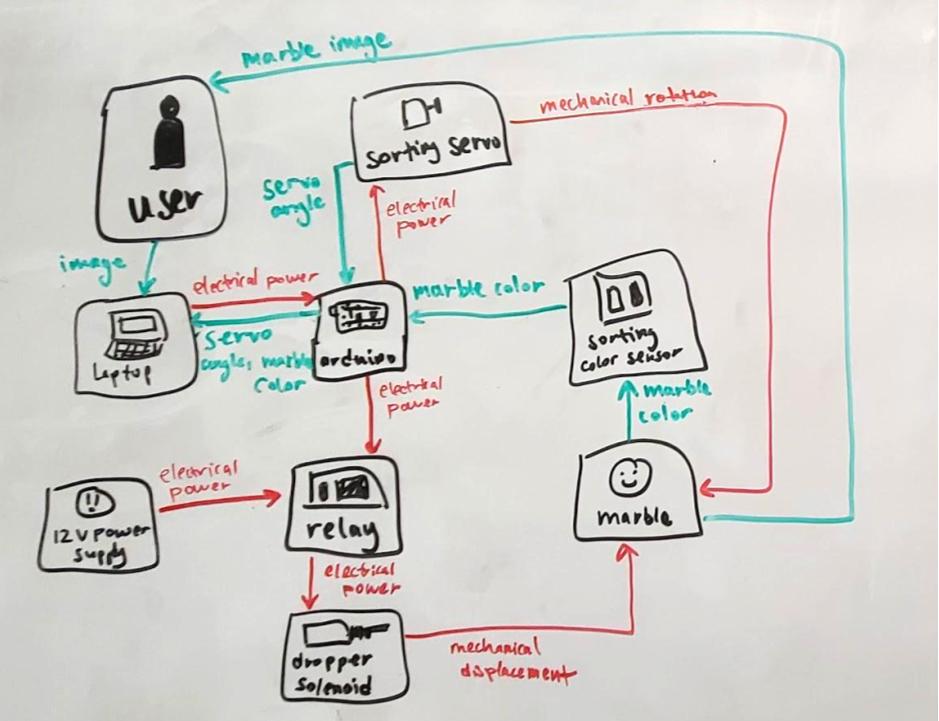 marble image
user
sorting servo
mechanical rotation
servo
angle
electrical
power
image
electrical power
marble color
laptop
servo
angle, marble
color
arduino
sorting
color sensor
electrical
power
marble
color
electrical
power
12 V power
supply
relay
marble
electrical
power
dropper
solenoid
mechanical
displacement